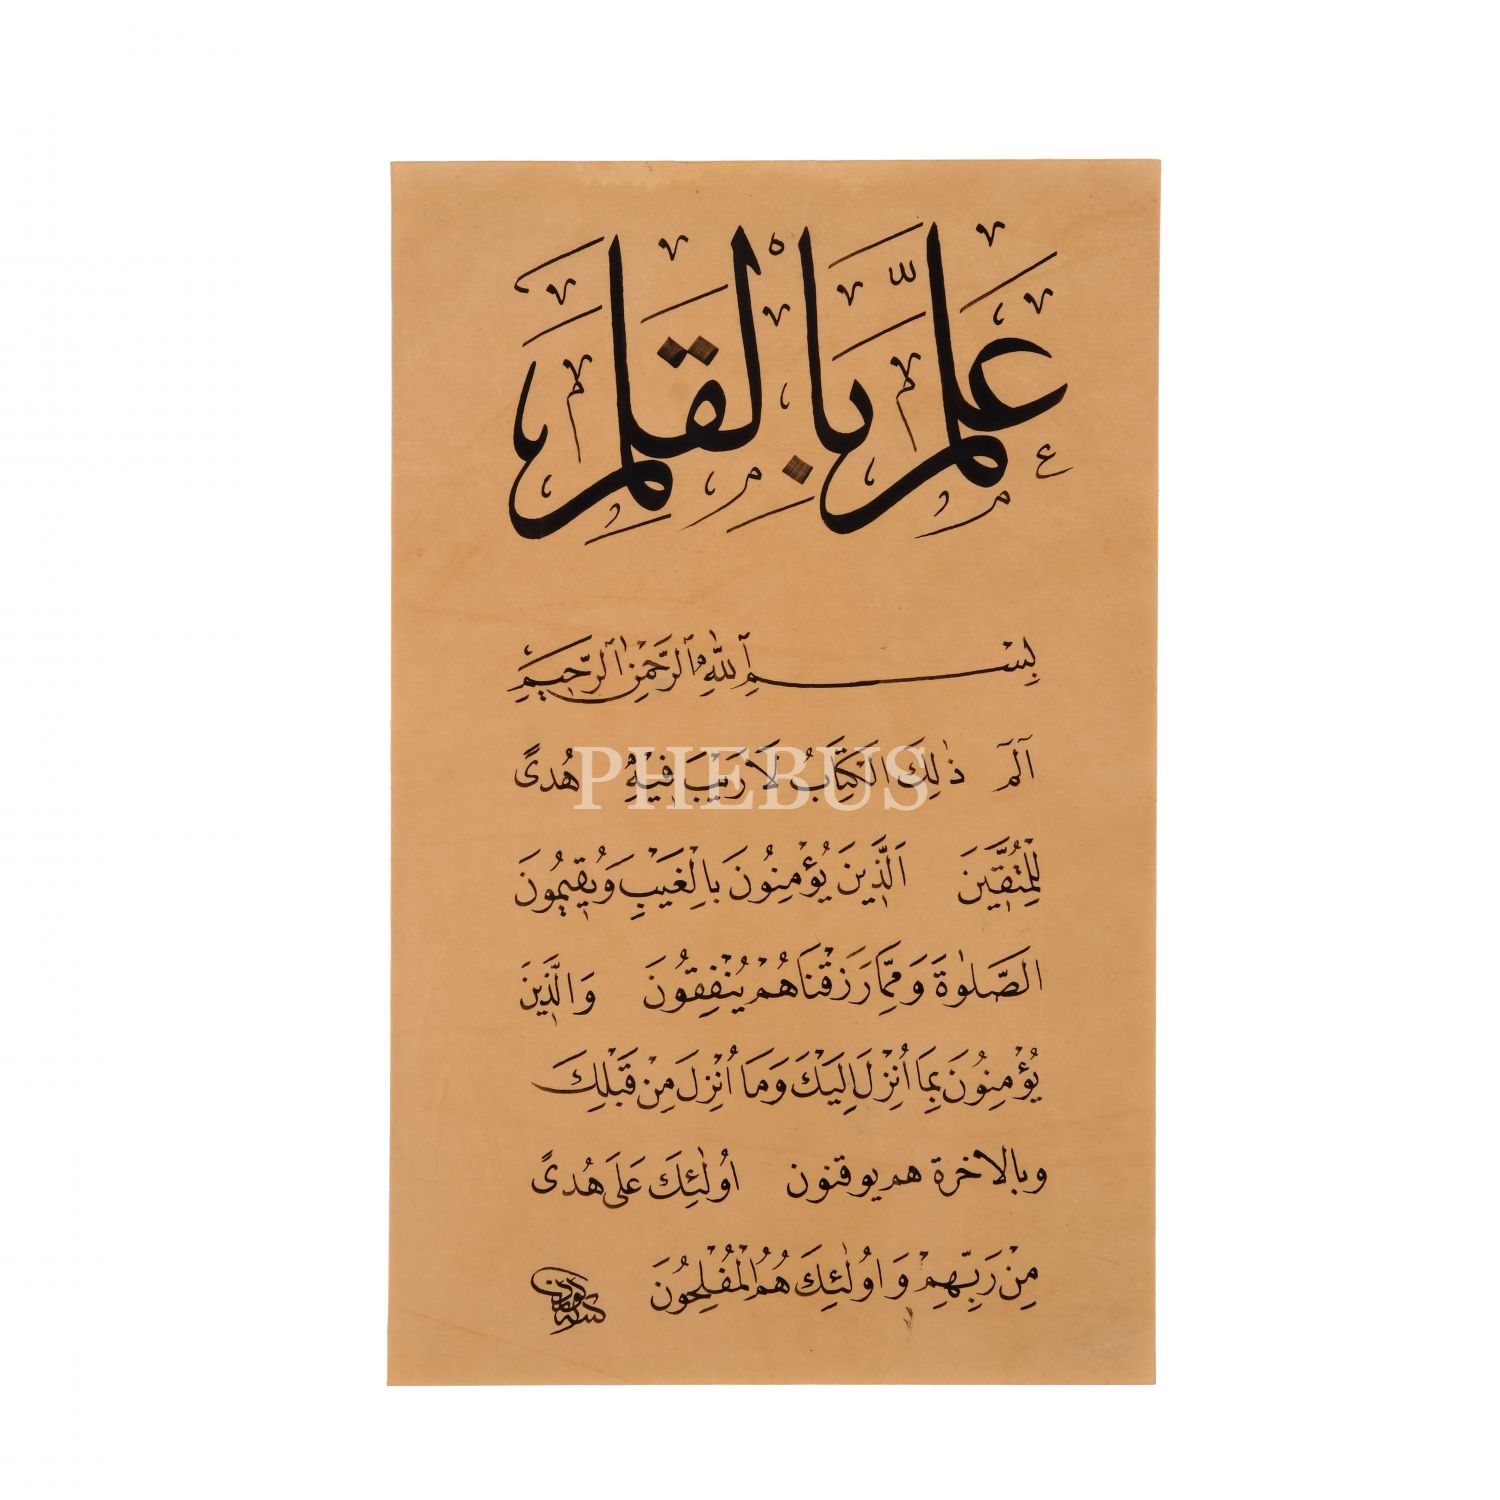 عَلَّمَ بِالْقَلَمِ
بِسْمِ ٱللّٰهِ ٱلرَّحْمٰنِ ٱلرَّحِيمِ
الٓمٓ ذٰلِكَ الْكِتَابُ لَا رَيْبَ فِيهِ هُدىً
PHEBUS
لِلْمُتَّقِينَ اَلَّذِينَ يُؤْمِنُونَ بِالْغَيْبِ وَيُقِيمُونَ
الصَّلٰوةَ وَمِمَّا رَزَقْنَاهُمْ يُنْفِقُونَ وَالَّذِينَ
يُؤْمِنُونَ بِمَا اُنْزِلَ اِلَيْكَ وَمَا اُنْزِلَ مِنْ قَبْلِكَ
وبالاخرة هم يوقنون اُولٰئِكَ عَلَى هُدىً
مِنْ رَبِّهِمْ وَاُولٰئِكَ هُمُ الْمُفْلِحُونَ